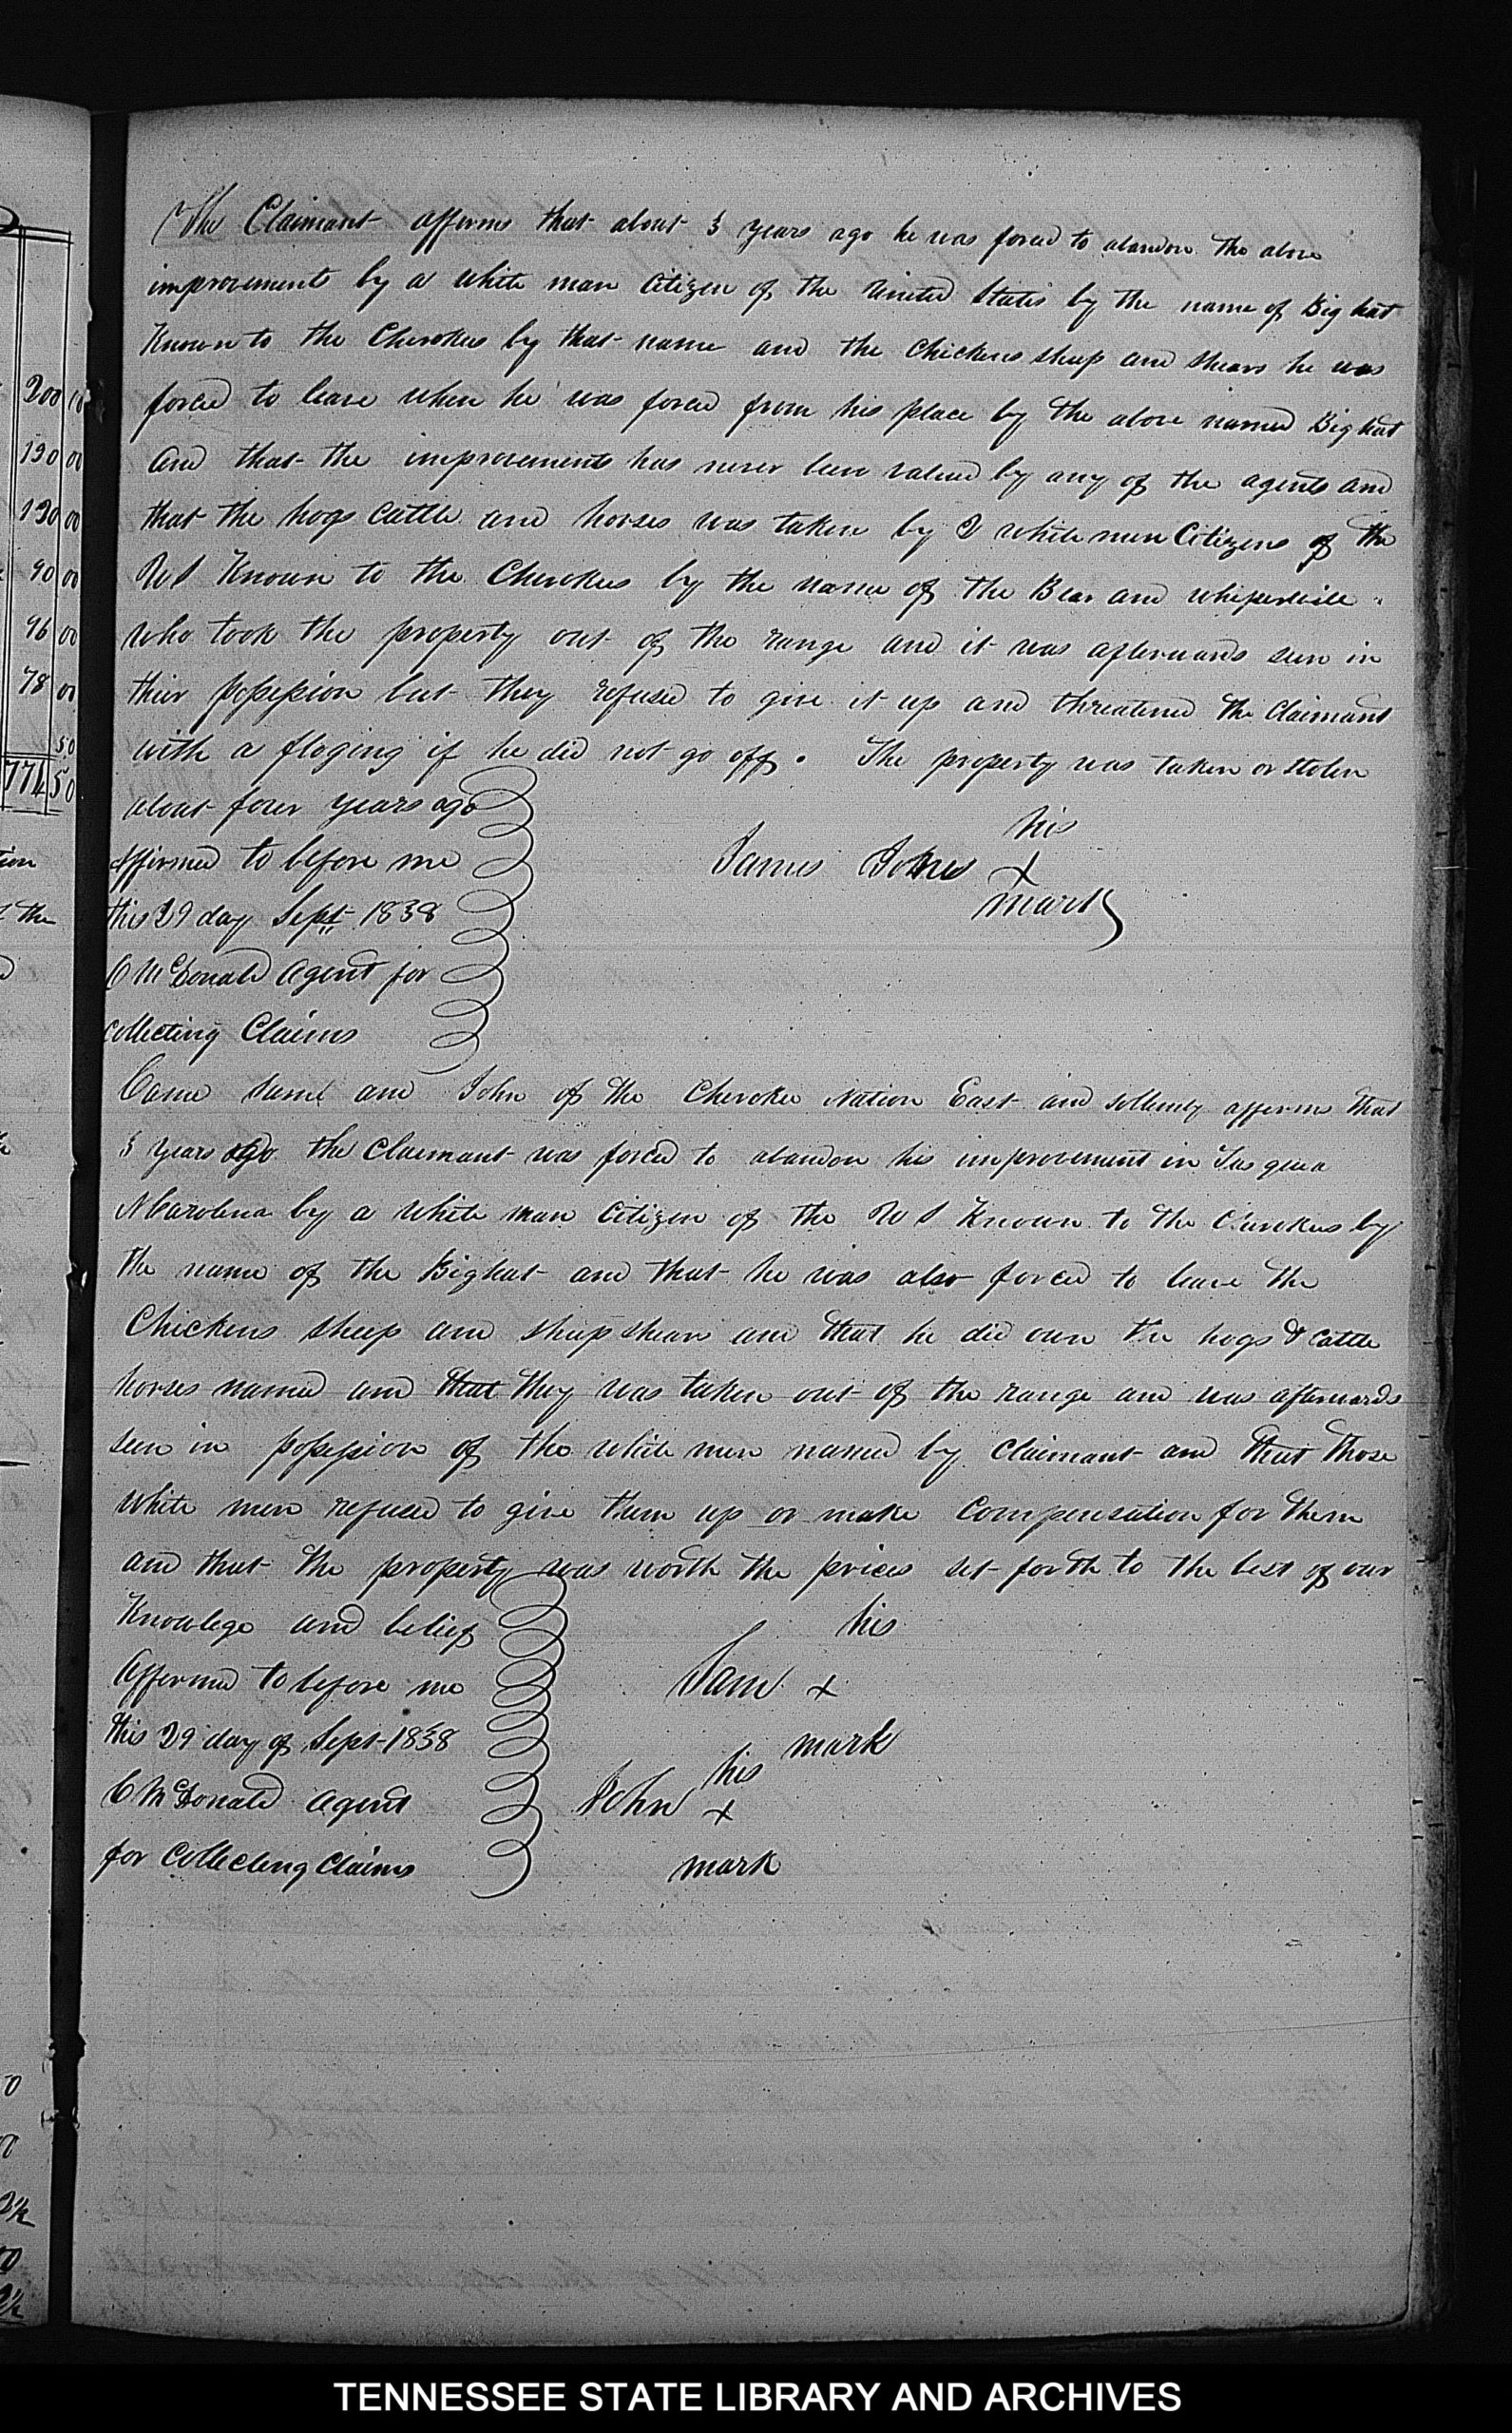 200 10
130 00
130 00
90 00
96 00
78 00
50
774 50
The Claimant affirms that about 3 years ago he was forced to abandon the above
improvements by a white man Citizen of the United States by the name of Big hat
Known to the Cherokees by that name and the Chickens sheep and shears he was
forced to leave when he was forced from his place by the above named Big hat
and that the improvements has never been valued by any of the agents and
that the hogs Cattle and horses was taken by 2 white men Citizens of the
U S Known to the Cherokees by the name of the Bear and
who took the property out of the range and it was afterwards seen in
thier possession but they refused to give it up and threatened the Claimant
with a floging if he did not go off. The property was taken or stolen
about four years ago
affirmed to before me
this 29 day Sept 1838
C McDonald Agent for
Collecting Claims
James Johns his x mark
Came Saml and John of the Cherokee Nation East and sollemly affirms that
3 years ago the Claimant was forced to abandon his improvement in
N Carolina by a white man Citizen of the U S Known to the Cherokees by
the name of the Bighat and that he was also forced to leave the
Chickens sheep and sheep shears and that he did own the hogs & Cattle
horses named and that they was taken out of the range and was afterwards
seen in possession of the white men named by Claimant and that those
white men refused to give them up or make Compensation for them
and that the property was worth the prices set forth to the best of our
Knowlege and belief
Affirmed to before me
this 29 day of Sept 1838
C McDonald Agent
for Collecting Claims
Sam his x mark
John his x mark
TENNESSEE STATE LIBRARY AND ARCHIVES